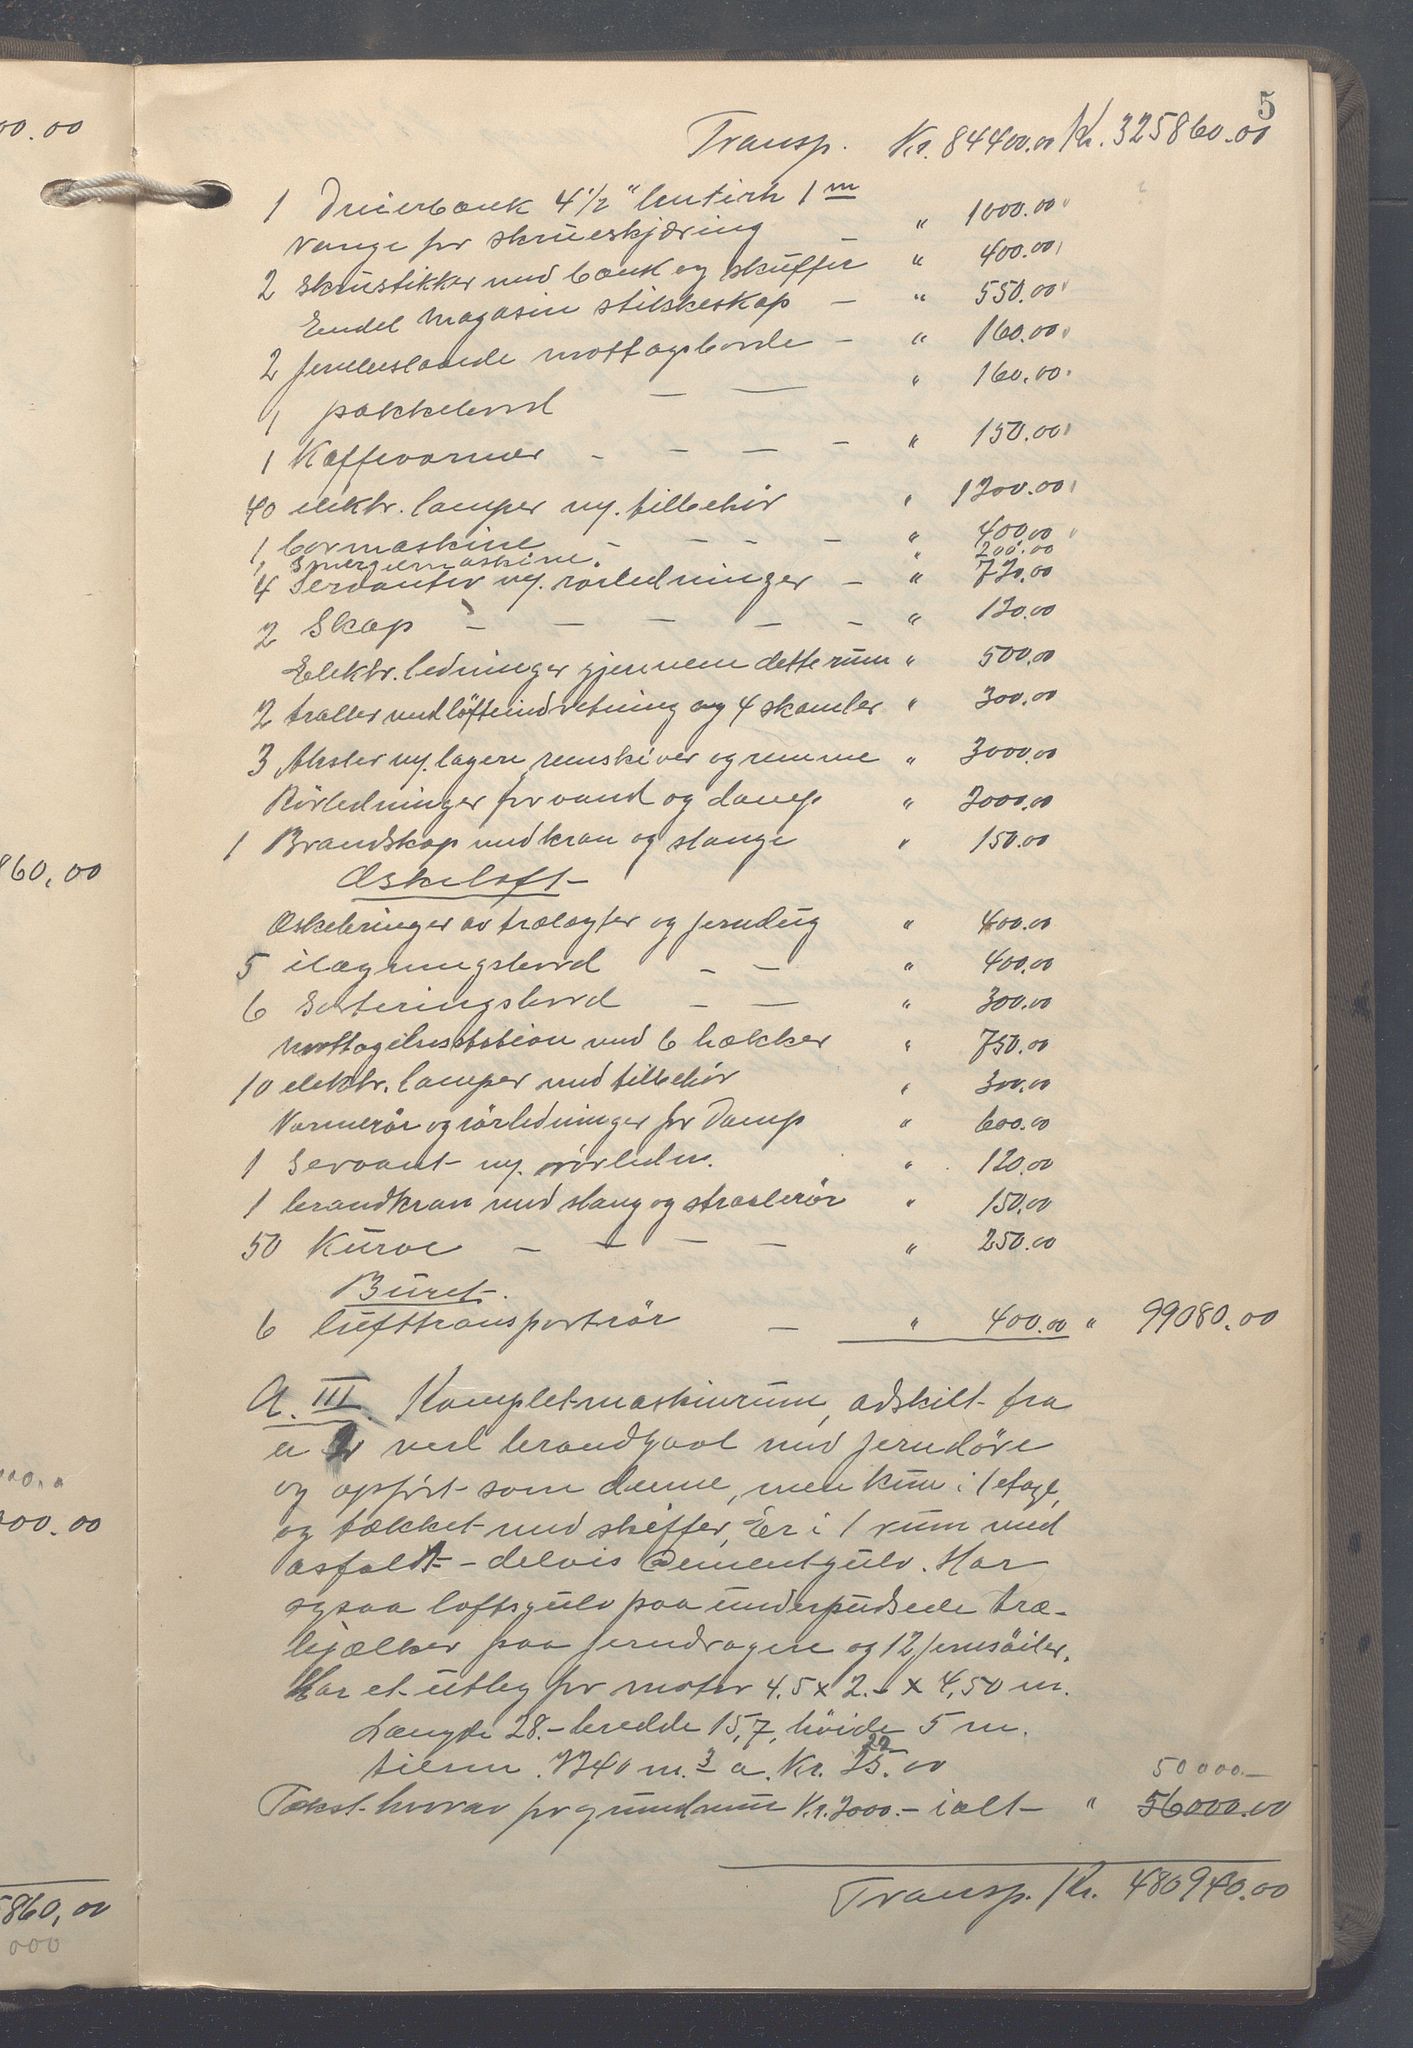 5
Transp. Kr. 84400.00 Kr. 325860.00
1 Dreierbænk 4 1/2" 1 m
vange for skrueskjæring " 1000.00
2 skrustikker med bænk og skuffer " 400.00
Endel magasin stilskeskap — " 550.00
2 jernbeslaaede mottagsborde — " 160.00
1 pakkebord — — " 160.00
1 Kaffevarmer - - - - " 150.00
40 elektr. lamper m/. tilbehör " 1200.00
1 bormaskine - - - - " 400.00
1 Smergelmaskine. " 200.00
4 Servanter m/. rörledninger — " 720.00
2 Skap — — — — — " 120.00
Elektr. ledninger gjennem dette rum " 500.00
2 traller med löfteindretning og 4 skamler " 300.00
3 Aksler m/. lagere, remskiver og remme " 3000.00
Rörledninger for vand og damp " 2000.00
1 Brandskap med kran og slange " 150.00
Æskeloft
Æskebringer av trælagter og jerndug " 400.00
5 ilægningsbord — — " 400.00
6 Sorteringsbord — — " 300.00
Mottagelsesstation med 6 hækker " 750.00
10 elektr. lamper med tilbehör " 300.00
Varmerör og rörledninger for Damp " 600.00
1 Servant m/. rörledn. " 120.00
1 brandkran med slang og straalerör " 150.00
50 Kurve — — — — " 250.00
Buret.
6 lufttransportrör — " 400.00 " 99080.00
A. III. Komplet maskinrum, adskilt fra
a 2 ved brandgavl med jerndöre
og opfört som denne, men kun i 1 etage,
og tækket med skiffer. Er i 1 rum med
asfalt- delvis Cementgulv. Har
ogsaa loftsgulv paa underpudsede træ-
bjælker paa jerndragere og 12 jernsöiler.
Har et utbyg for motor 4.5 x 2.- x 4,50 m.
Længde 28.- bredde 15,7, höide 5 m.
tilsm. 2240 m.3 a. Kr. 25.00
22
50000.—
Takst hvorav for grundmur Kr. 2000.- ialt — " 56000.00
Transp. Kr. 480940.00
00.00
860,00
000.0
000.00
5860,00
000